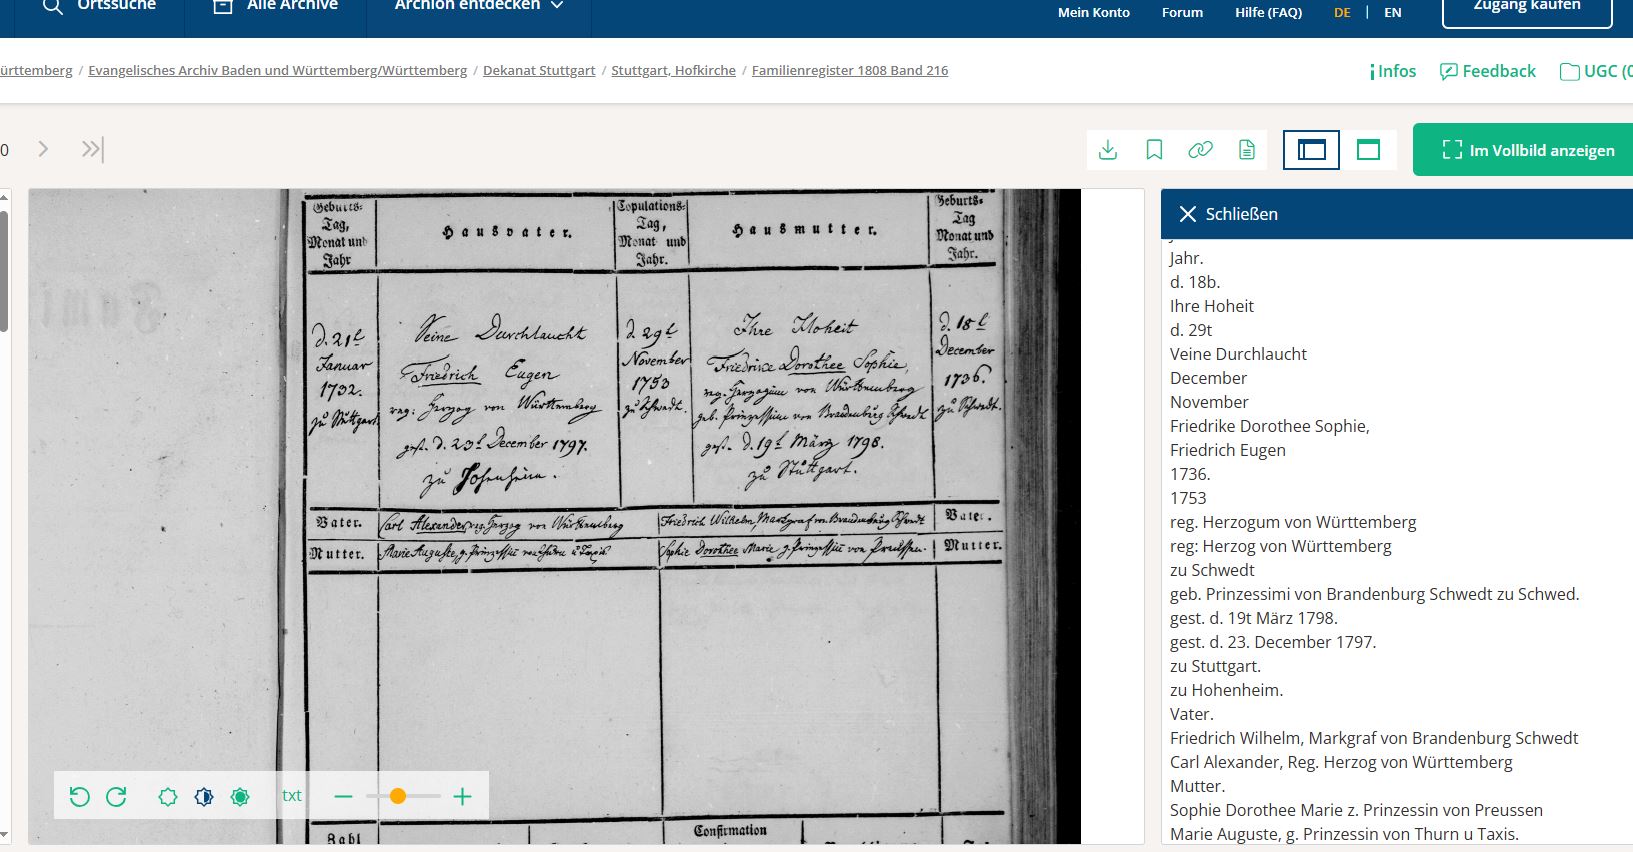 Ortssuche
Alle Archive
Archion entdecken
Mein Konto
Forum
Hilfe (FAQ)
DE | EN
Zugang kaufen
ürttemberg / Evangelisches Archiv Baden und Württemberg/Württemberg / Dekanat Stuttgart / Stuttgart, Hofkirche / Familienregister 1808 Band 216
Infos
Feedback
UGC (0
0
Im Vollbild anzeigen
Geburts-
Tag,
Monat und
Jahr
Hausvater.
Copulations-
Tag,
Monat und
Jahr.
Hausmutter.
Geburts-
Tag
Monat und
Jahr.
d. 21t
Januar
1732.
zu Stuttgart.
Seine Durchlaucht
Friedrich Eugen
reg: Herzog von Württemberg
gest. d. 23t December 1797.
zu Hohenheim.
d. 29t
November
1753
zu Schwedt.
Ihre Hoheit
Friedrike Dorothee Sophie,
reg. Herzogin von Württemberg
geb. Prinzessin von Brandenburg Schwedt
gest. d. 19t März 1798.
zu Stuttgart.
d. 18t
December
1736.
zu Schwedt.
Vater.
Carl Alexander, reg. Herzog von Württemberg
Friedrich Wilhelm, Markgraf von Brandenburg Schwedt
Vater.
Mutter.
Marie Auguste, g. Prinzessin von Thurn u Taxis
Sophie Dorothee Marie g. Prinzessin von Preussen.
Mutter.
Zahl
Confirmation
txt
Schließen
Jahr.
d. 18b.
Ihre Hoheit
d. 29t
Veine Durchlaucht
December
November
Friedrike Dorothee Sophie,
Friedrich Eugen
1736.
1753
reg. Herzogum von Württemberg
reg: Herzog von Württemberg
zu Schwedt
geb. Prinzessimi von Brandenburg Schwedt zu Schwed.
gest. d. 19t März 1798.
gest. d. 23. December 1797.
zu Stuttgart.
zu Hohenheim.
Vater.
Friedrich Wilhelm, Markgraf von Brandenburg Schwedt
Carl Alexander, Reg. Herzog von Württemberg
Mutter.
Sophie Dorothee Marie z. Prinzessin von Preussen
Marie Auguste, g. Prinzessin von Thurn u Taxis.